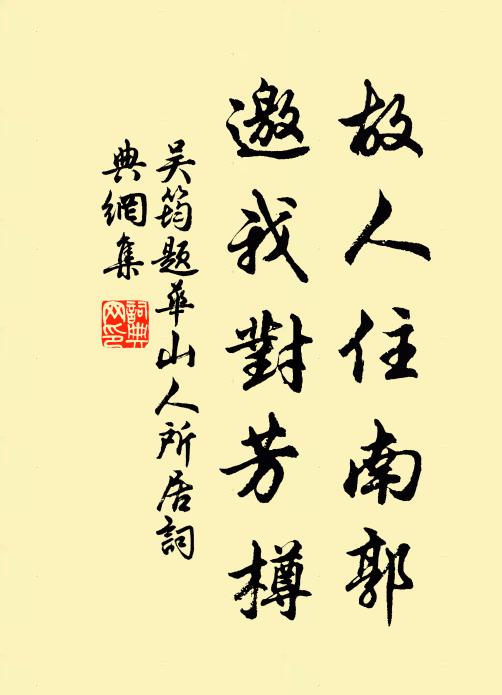 故人住南郭
邀我對芳樽
吳筠題華山人所居詞
典網集
詞典
网印